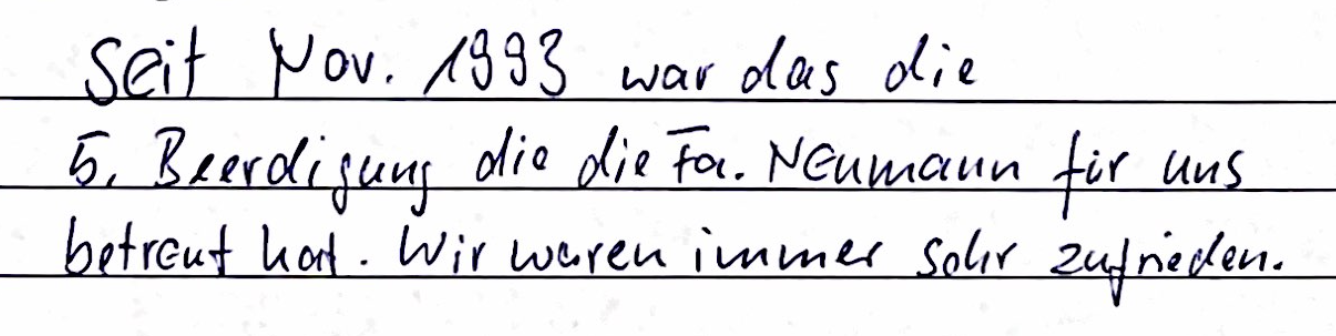 Seit Nov. 1993 war das die
5. Beerdigung die die Fa. Neumann für uns
betreut hat. Wir waren immer sehr zufrieden.